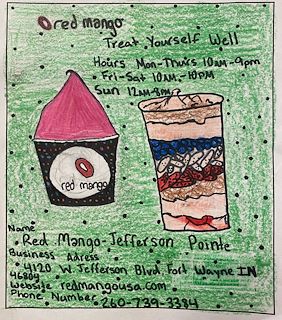 red mango
Treat Yourself Well
Hours Mon-Thurs 10AM-9pm
Fri-Sat 10AM-10PM
Sun 12AM-8PM
red mango
Name
Red Mango-Jefferson Pointe
Business Adress
4120 W. Jefferson Blvd. Fort Wayne IN.
46804
Website redmangousa.com
Phone Number 260-739-3384